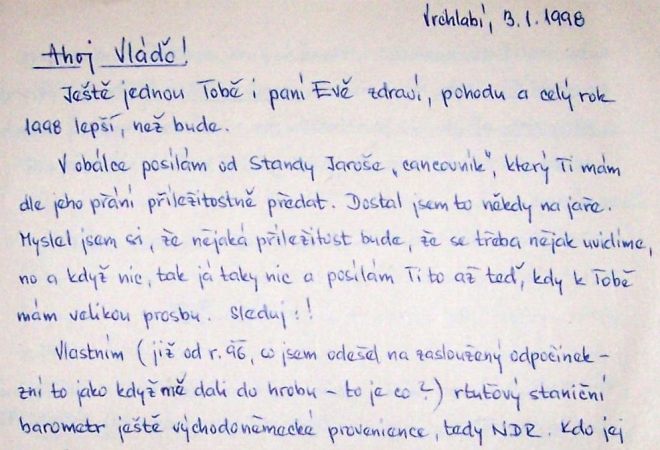 Vrchlabí, 3.1.1998
Ahoj Vláďo!
Ještě jednou Tobě i paní Evě zdraví, pohodu a celý rok
1998 lepší, než bude.
V obálce posílám od Standy Jaroše „cancovník", který Ti mám
dle jeho přání příležitostně předat. Dostal jsem to někdy na jaře.
Myslel jsem si, že nějaká příležitost bude, že se třeba nějak uvidíme,
no a když nic, tak já taky nic a posílám Ti to až teď, kdy k Tobě
mám velikou prosbu. Sleduj:!
Vlastním (již od r. 96, co jsem odešel na zasloužený odpočinek –
zní to jako když mě dali do hrobu – to je co?) rtuťový staniční
barometr ještě východoněmecké provenience, tedy NDR. Kdo jej